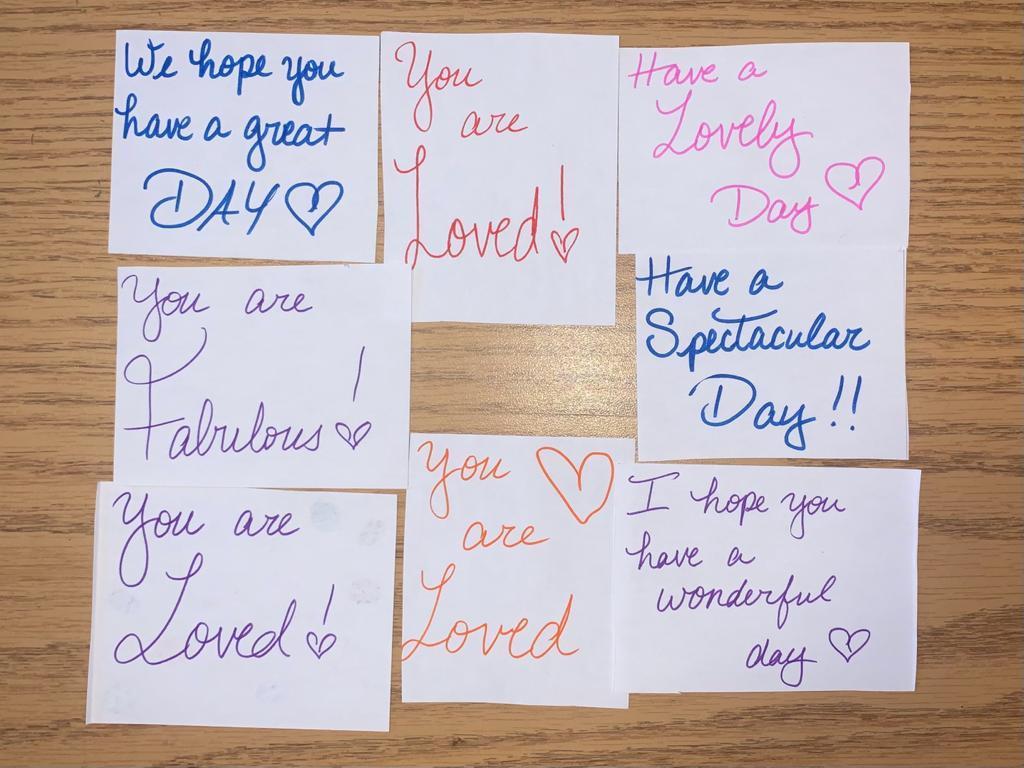 We hope you
have a great
DAY
You
are
Loved!
Have a
Lovely
Day
You are
Fabulous!
Have a
Spectacular
Day!!
You are
Loved!
You
are
Loved
I hope you
have a
wonderful
day